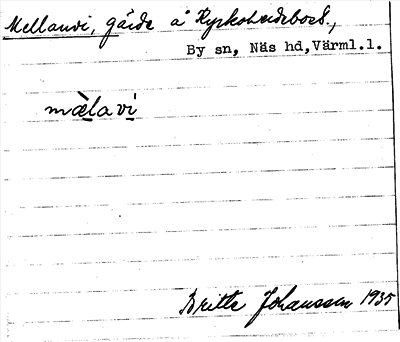 Mellanvi, gärde å Kyrkohedsbost.,
By sn, Näs hd, Värml.l.
mæ̀lavi
Britta Johansson 1935